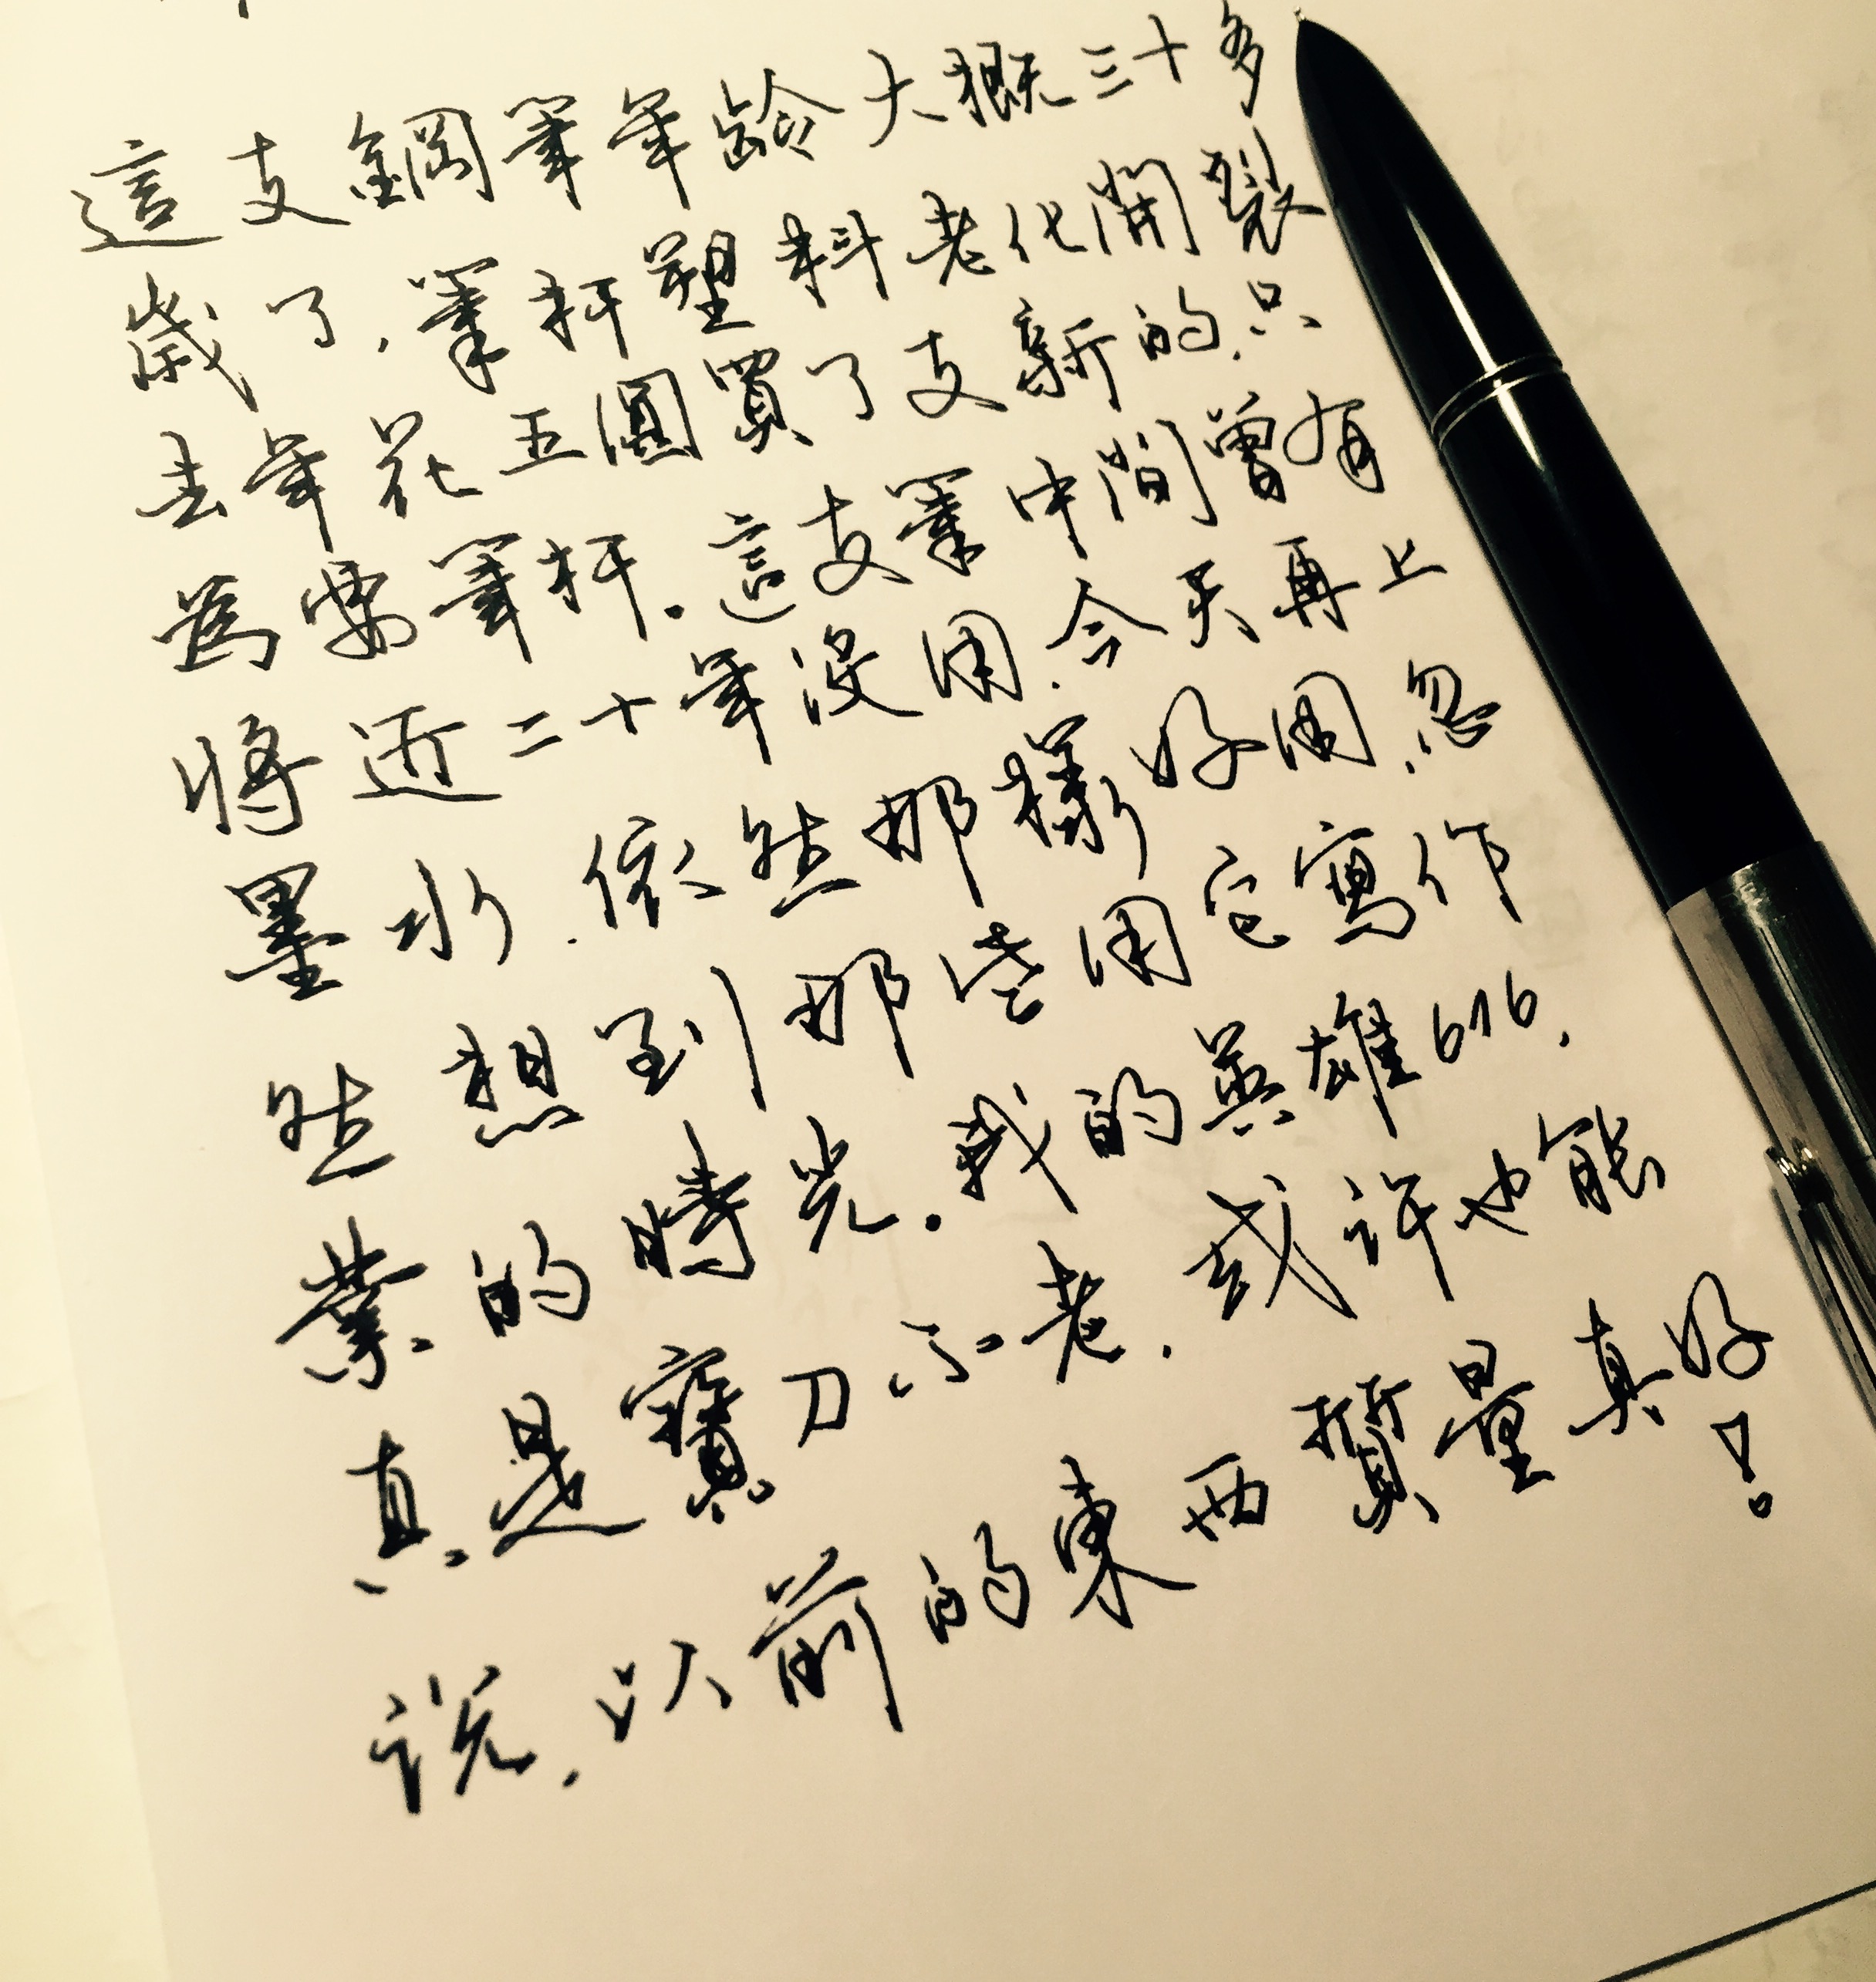 這支鋼筆年齡大概三十多
歲了,筆杆塑料老化開裂
去年花五圓買了支新的,只
為要筆杆.這支筆中間曾有
將近二十年沒用.今天再上
墨水.依然那樣好用.忽
然想到那些用它寫作
業的時光.我的英雄616,
真是寶刀不老.或许也能
说,以前的東西質量真好!